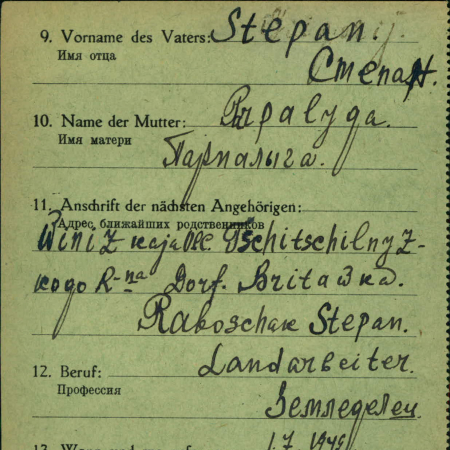 9. Vorname des Vaters: Stepanij.
Имя отца
Степан.
10. Name der Mutter: Parpalyga.
Имя матери
Парпалыга.
11. Anschrift der nächsten Angehörigen:
Адрес ближайших родственников
Winizкаja Obl. Tschitschilnyz-
кого R-на Dorf. Britaвка.
Rakoschak Stepan.
12. Beruf: Landarbeiter.
Профессия
Земледелец